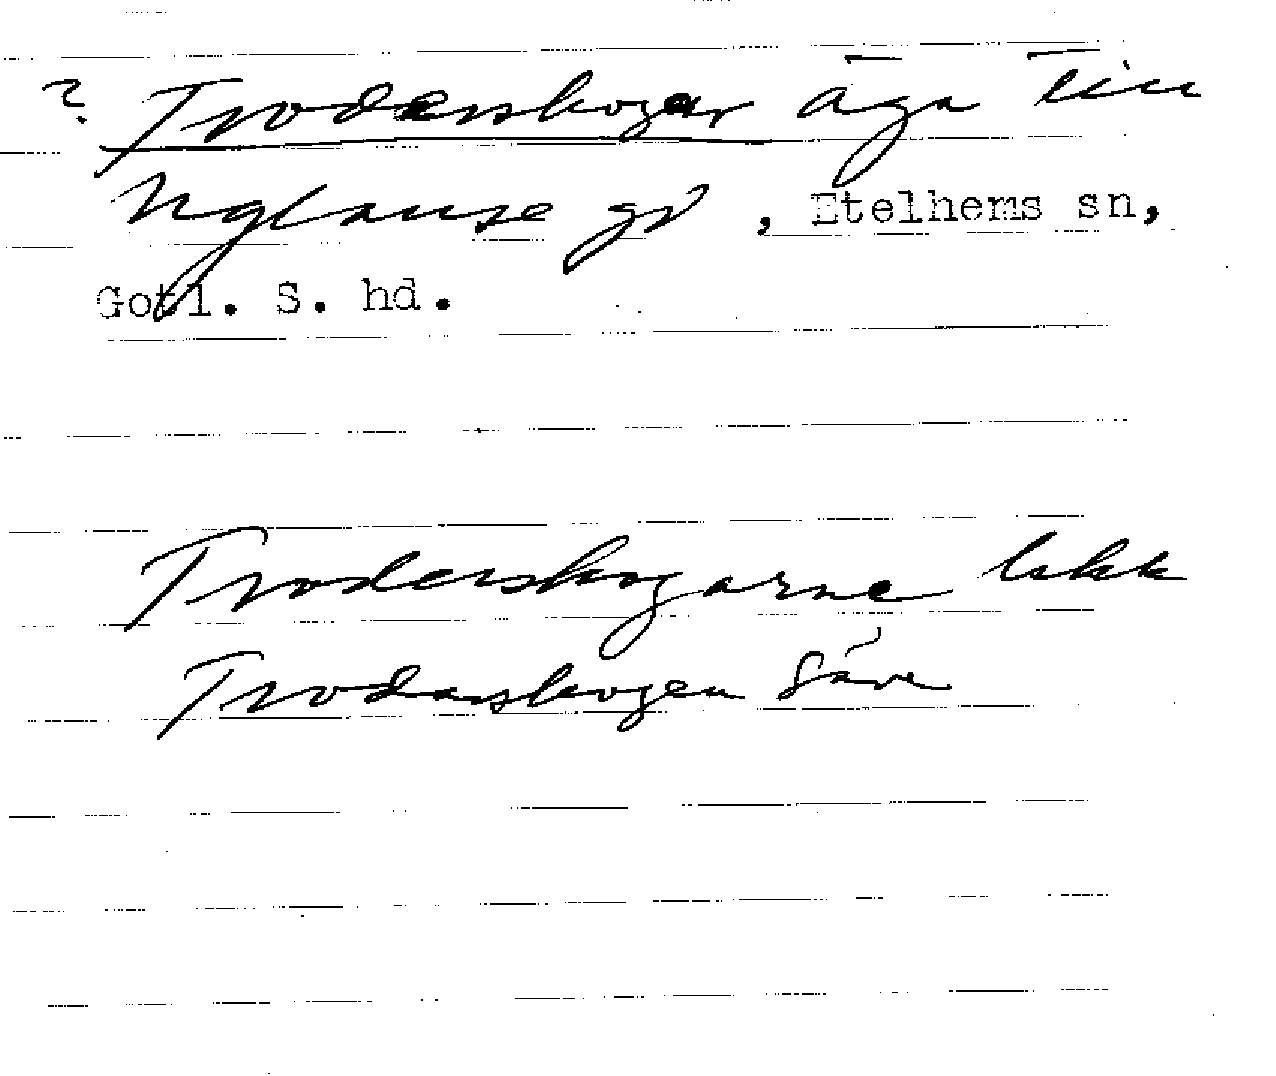 ? Troderskogar äga till
Nygranse gd, Etelhems sn,
Gotl. S. hd.
Troderskogarne lskk
Trodarskogen Säve